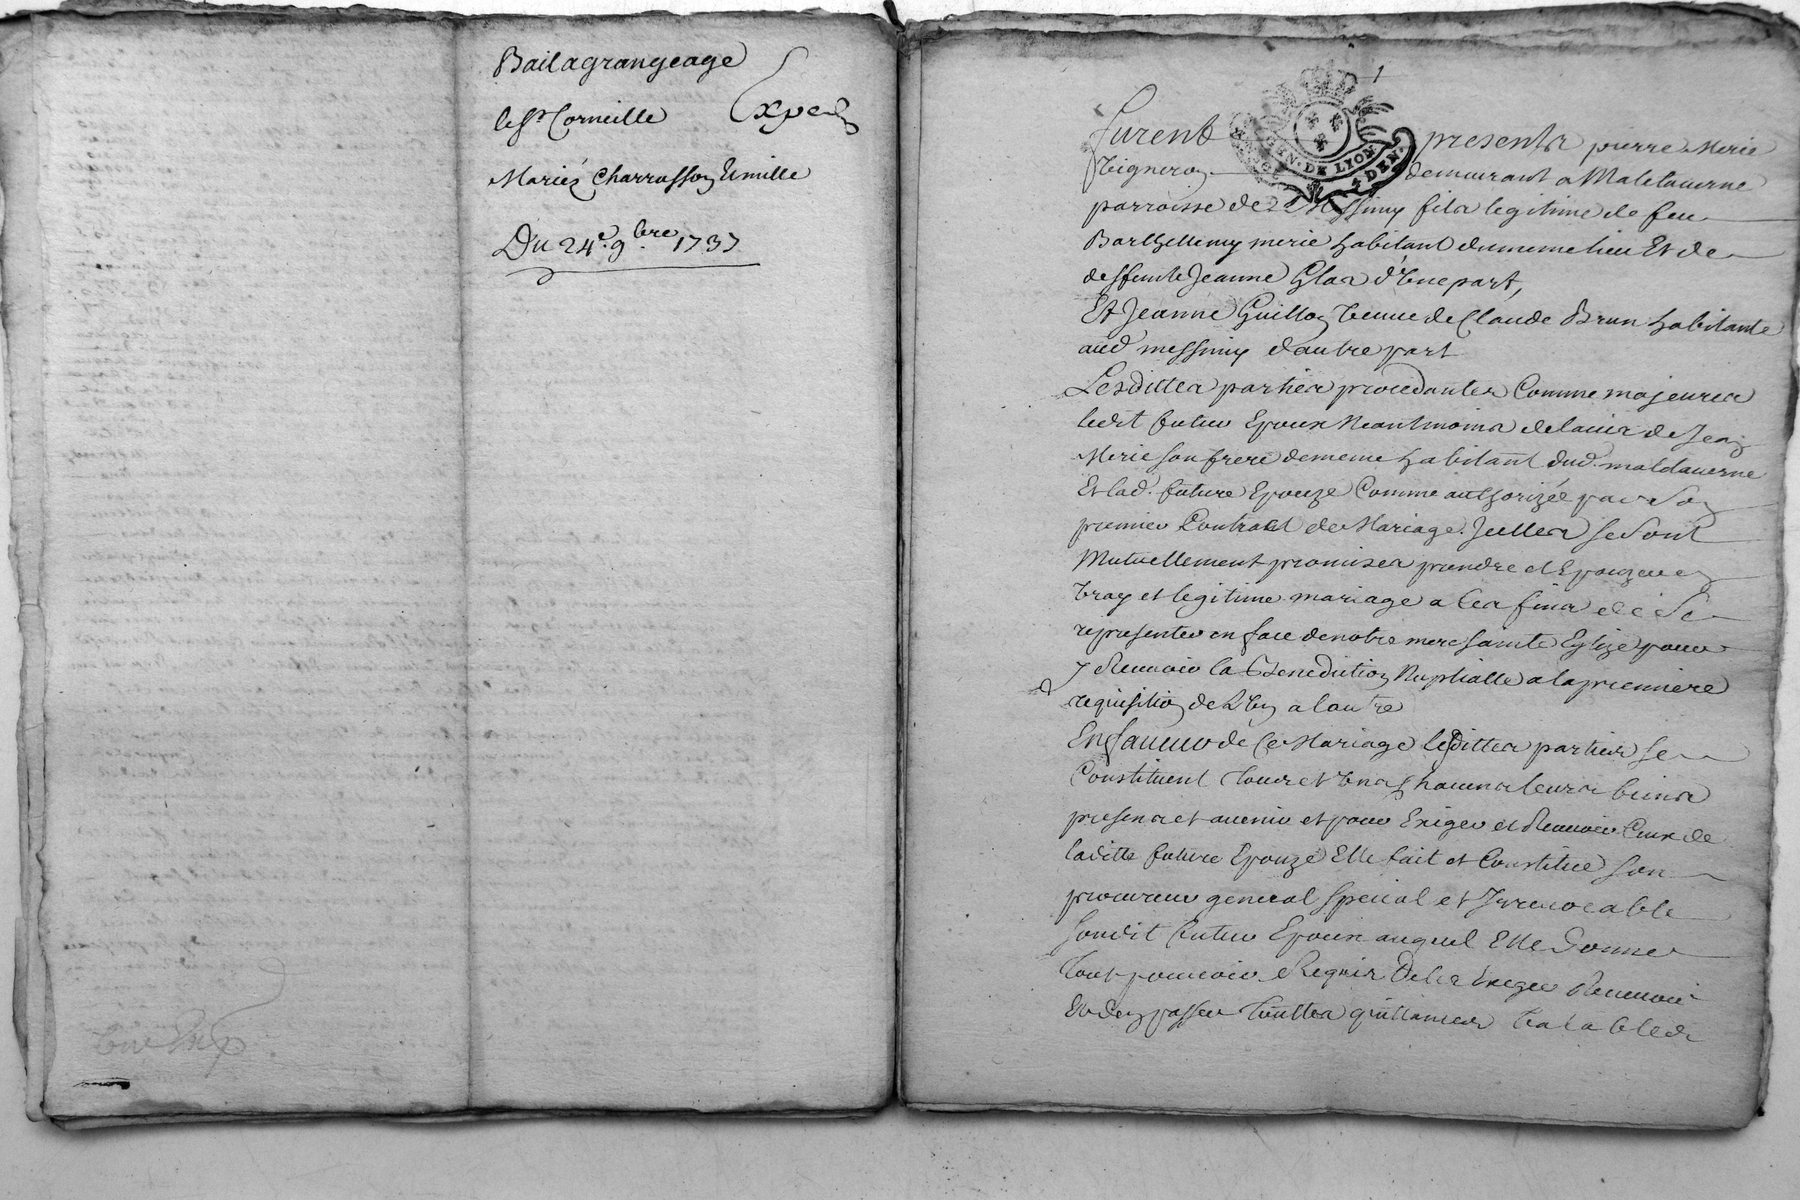 Bail a grangeage
le Sr Corneille
Expedié
Mariés Charrasson Emille
Du 24e. 9bre. 1737
1
GEN. DE LYON
4 DEN.
Furent presents pierre Merie
Vigneron demeurant a Maletaverne
parroisse de Messimy fils legitime de feu
Barthellemy merie habitant du meme lieu Et de
deffunte Jeanne Glas d'Une part,
Et Jeanne Guillon Veuve de Claude Brun habitante
aud messimy d'autre part
Lesdittes parties procedantes Comme majeures
ledit futur Epoux Neantmoins de lavis de Jean
Merie son frere de meme habitant dud. maletaverne
Et lad. future Epouze Comme authorizée par son
premier Contract de Mariage. Icelles se sont
Mutuellement promises prendre et Epouzer en
Vray et legitime mariage a ces fins de se
representer en face de notre mere sainte Eglize pour
y Recevoir la Benediction Nuptialle a la premiere
requisition de L'Un a lautre
En faveur de Ce Mariage lesdittes parties se
Constituent tous et Uns chacuns leurs biens
presens et avenir et pour Exiger et Recevoir Ceux de
laditte future Epouze Elle fait et Constitue son
procureur general special et Irrevocable
sondit futur Epoux auquel Elle Donne
tout pouvoir Requir Delle Exiger Recevoir
Et den passer touttes quittances Valables